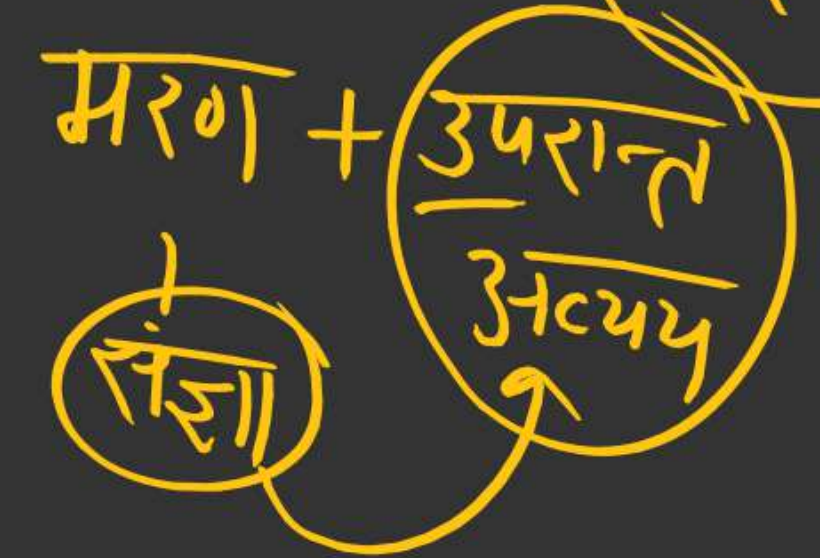 मरण + उपरान्त
अव्यय
संज्ञा